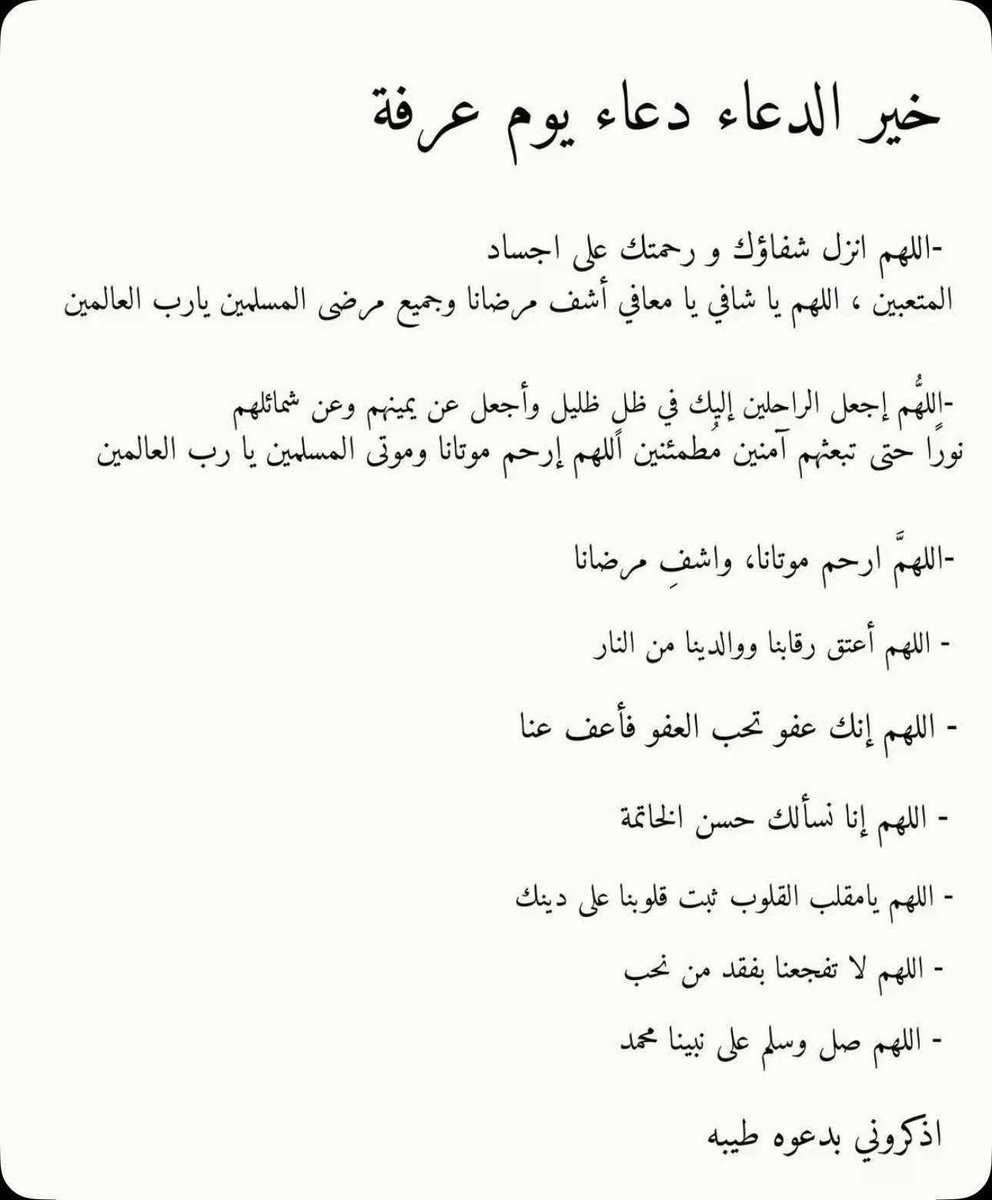 خير الدعاء دعاء يوم عرفة
-اللهم انزل شفاؤك و رحمتك على اجساد
المتعبين ، اللهم يا شافي يا معافي أشف مرضانا وجميع مرضى المسلمين يارب العالمين
-اللهُّم إجعل الراحلين إليك في ظلٍ ظليل وأجعل عن يمينهم وعن شمائلهم
نورًا حتى تبعثهم آمنين مُطمئنين اللهم إرحم موتانا وموتى المسلمين يا رب العالمين
-اللهمَّ ارحم موتانا، واشفِ مرضانا
- اللهم أعتق رقابنا ووالدينا من النار
- اللهم إنك عفو تحب العفو فأعف عنا
- اللهم إنا نسألك حسن الخاتمة
- اللهم يامقلب القلوب ثبت قلوبنا على دينك
- اللهم لا تفجعنا بفقد من نحب
- اللهم صل وسلم على نبينا محمد
اذكروني بدعوه طيبه